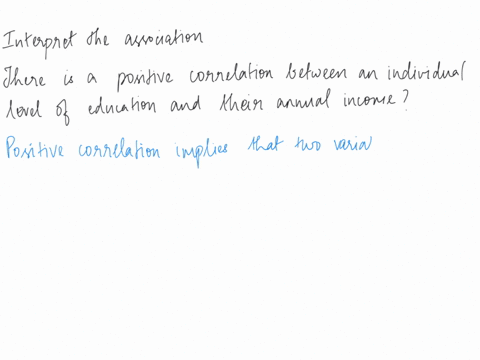 Interpret the association
There is a positive correlation between an individual
level of education and their annual income?
Positive correlation implies that two varia